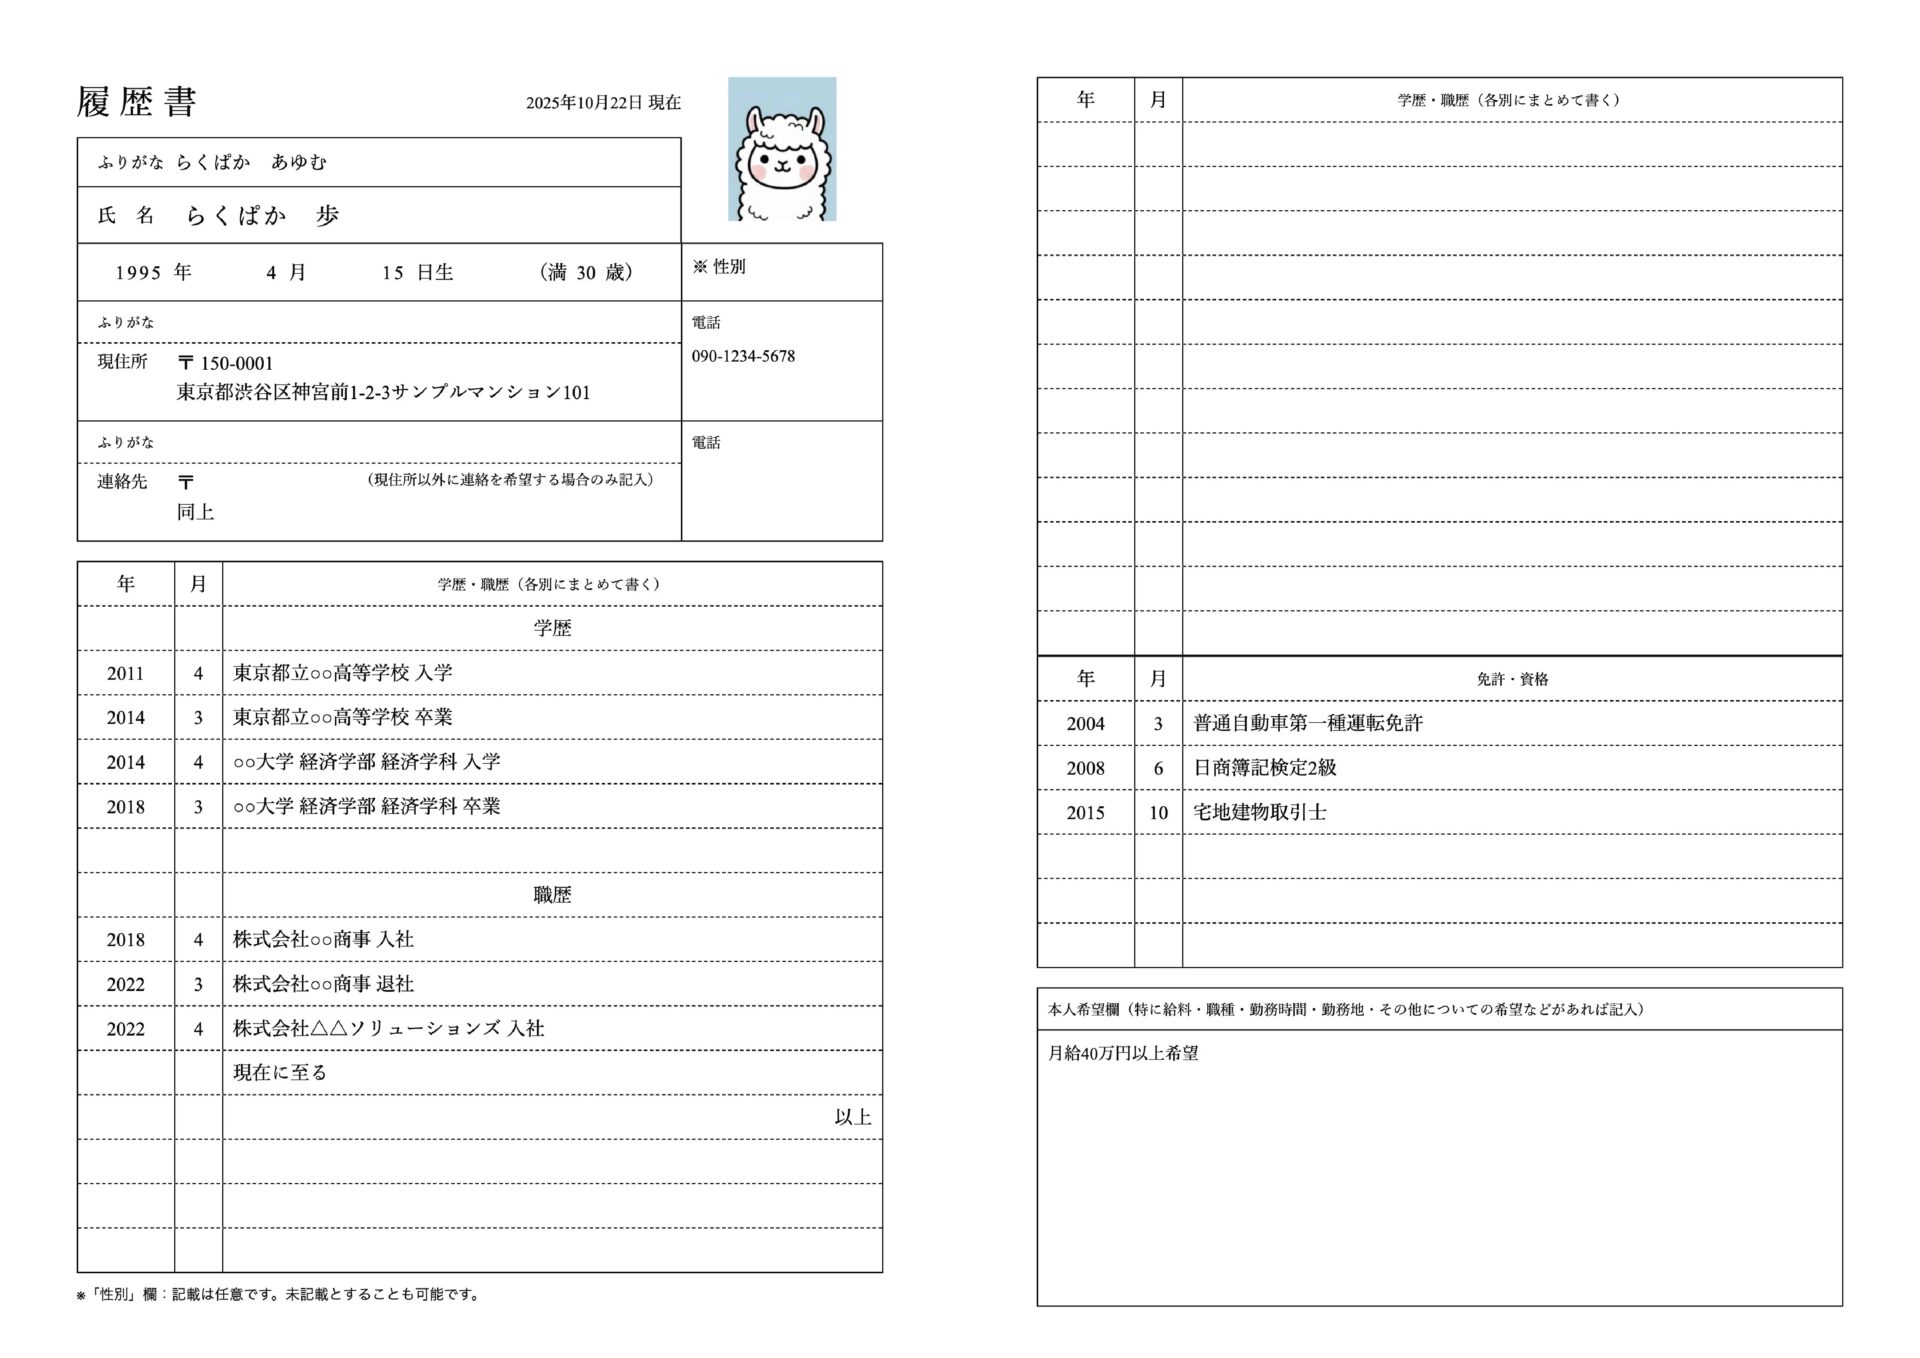 履歴書
2025年10月22日 現在
ふりがな らくぱか　あゆむ
氏　名　らくぱか　歩
1995 年 4 月 15 日生 （満 30 歳）
※ 性別
ふりがな
電話
090-1234-5678
現住所 〒 150-0001
東京都渋谷区神宮前1-2-3サンプルマンション101
ふりがな
電話
連絡先 〒 （現住所以外に連絡を希望する場合のみ記入）
同上
年 月 学歴・職歴（各別にまとめて書く）
学歴
2011 4 東京都立○○高等学校 入学
2014 3 東京都立○○高等学校 卒業
2014 4 ○○大学 経済学部 経済学科 入学
2018 3 ○○大学 経済学部 経済学科 卒業
職歴
2018 4 株式会社○○商事 入社
2022 3 株式会社○○商事 退社
2022 4 株式会社△△ソリューションズ 入社
現在に至る
以上
※「性別」欄：記載は任意です。未記載とすることも可能です。
年 月 学歴・職歴（各別にまとめて書く）
年 月 免許・資格
2004 3 普通自動車第一種運転免許
2008 6 日商簿記検定2級
2015 10 宅地建物取引士
本人希望欄（特に給料・職種・勤務時間・勤務地・その他についての希望などがあれば記入）
月給40万円以上希望